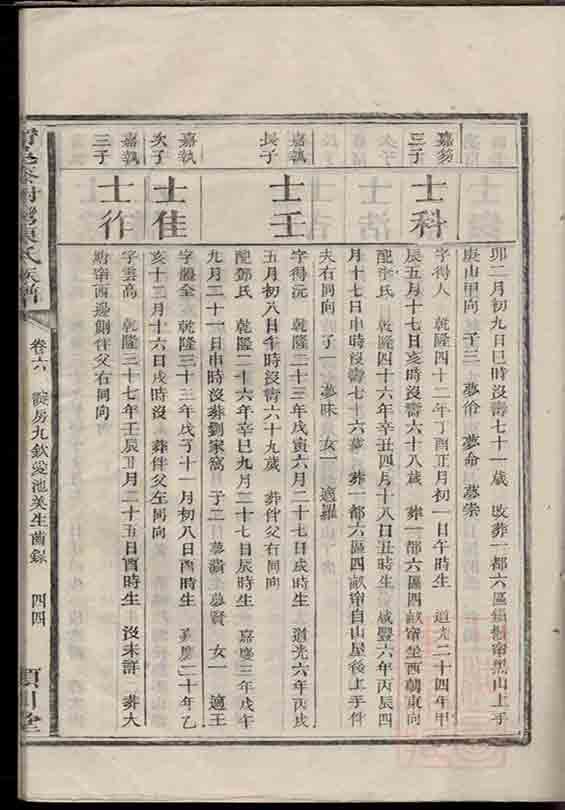 卯二月初九日巳時沒壽七十一歲 葬一都六區
庚山甲向 子三
嘉
三子
士科
字得人 乾隆四十二年丁酉正月初一日午時生 道光二十四年甲
辰五月十七日亥時沒壽六十八歲 葬一都六區四畝甯坐西朝東向
配李氏 乾隆四十六年辛丑四月十八日丑時生 咸豐六年丙辰四
月十七日申時沒壽七十六歲 葬一都六區四畝甯自山屋後上手伴
夫右同向 子一 夢昧 女一 適羅
嘉執
長子
士壬
字得沅 乾隆二十三年戊寅六月二十七日戌時生 道光六年丙戌
五月初八日午時沒壽六十九歲 葬伴父右同向
配鄧氏 乾隆二十六年辛巳九月二十七日辰時生 嘉慶三年戊午
九月二十一日申時沒葬劉家窩 子二 夢賢 女一 適王
嘉執
次子
士佳
字體全 乾隆三十三年戊子十一月初八日酉時生 嘉慶二十年乙
亥十二月十六日戌時沒 葬伴父左同向
嘉執
三子
士作
字雲高 乾隆三十七年壬辰正月二十五日酉時生 沒未詳 葬大
塘甯西邊側伴父右同向
陳氏族譜
卷六 欽愛池美生齒錄 四四
潁川堂